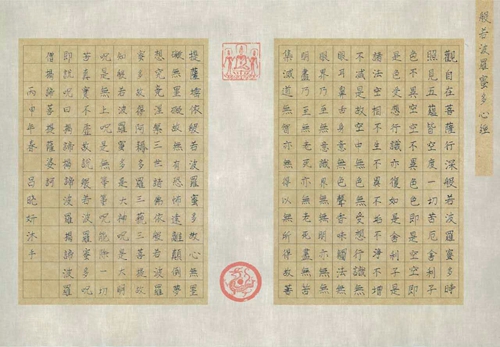 般若波羅蜜多心經
觀自在菩薩行深般若波羅蜜多時
照見五蘊皆空度一切苦厄舍利子
色不異空空不異色色即是空空即
是色受想行識亦復如是舍利子是
諸法空相不生不滅不垢不淨不增
不減是故空中無色無受想行識無
眼耳鼻舌身意無色聲香味觸法無
眼界乃至無意識界無無明亦無無
明盡乃至無老死亦無老死盡無苦
集滅道無智亦無得以無所得故菩
提薩埵依般若波羅蜜多故心無罣
礙無罣礙故無有恐怖遠離顛倒夢
想究竟涅槃三世諸佛依般若波羅
蜜多故得阿耨多羅三藐三菩提故
知般若波羅蜜多是大神呪是大明
呪是無上呪是無等等呪能除一切
苦真實不虛故說般若波羅蜜多呪
即說呪曰揭諦揭諦波羅揭諦波羅
僧揭諦菩提薩婆訶
丙申年春 呂曉妍沐手